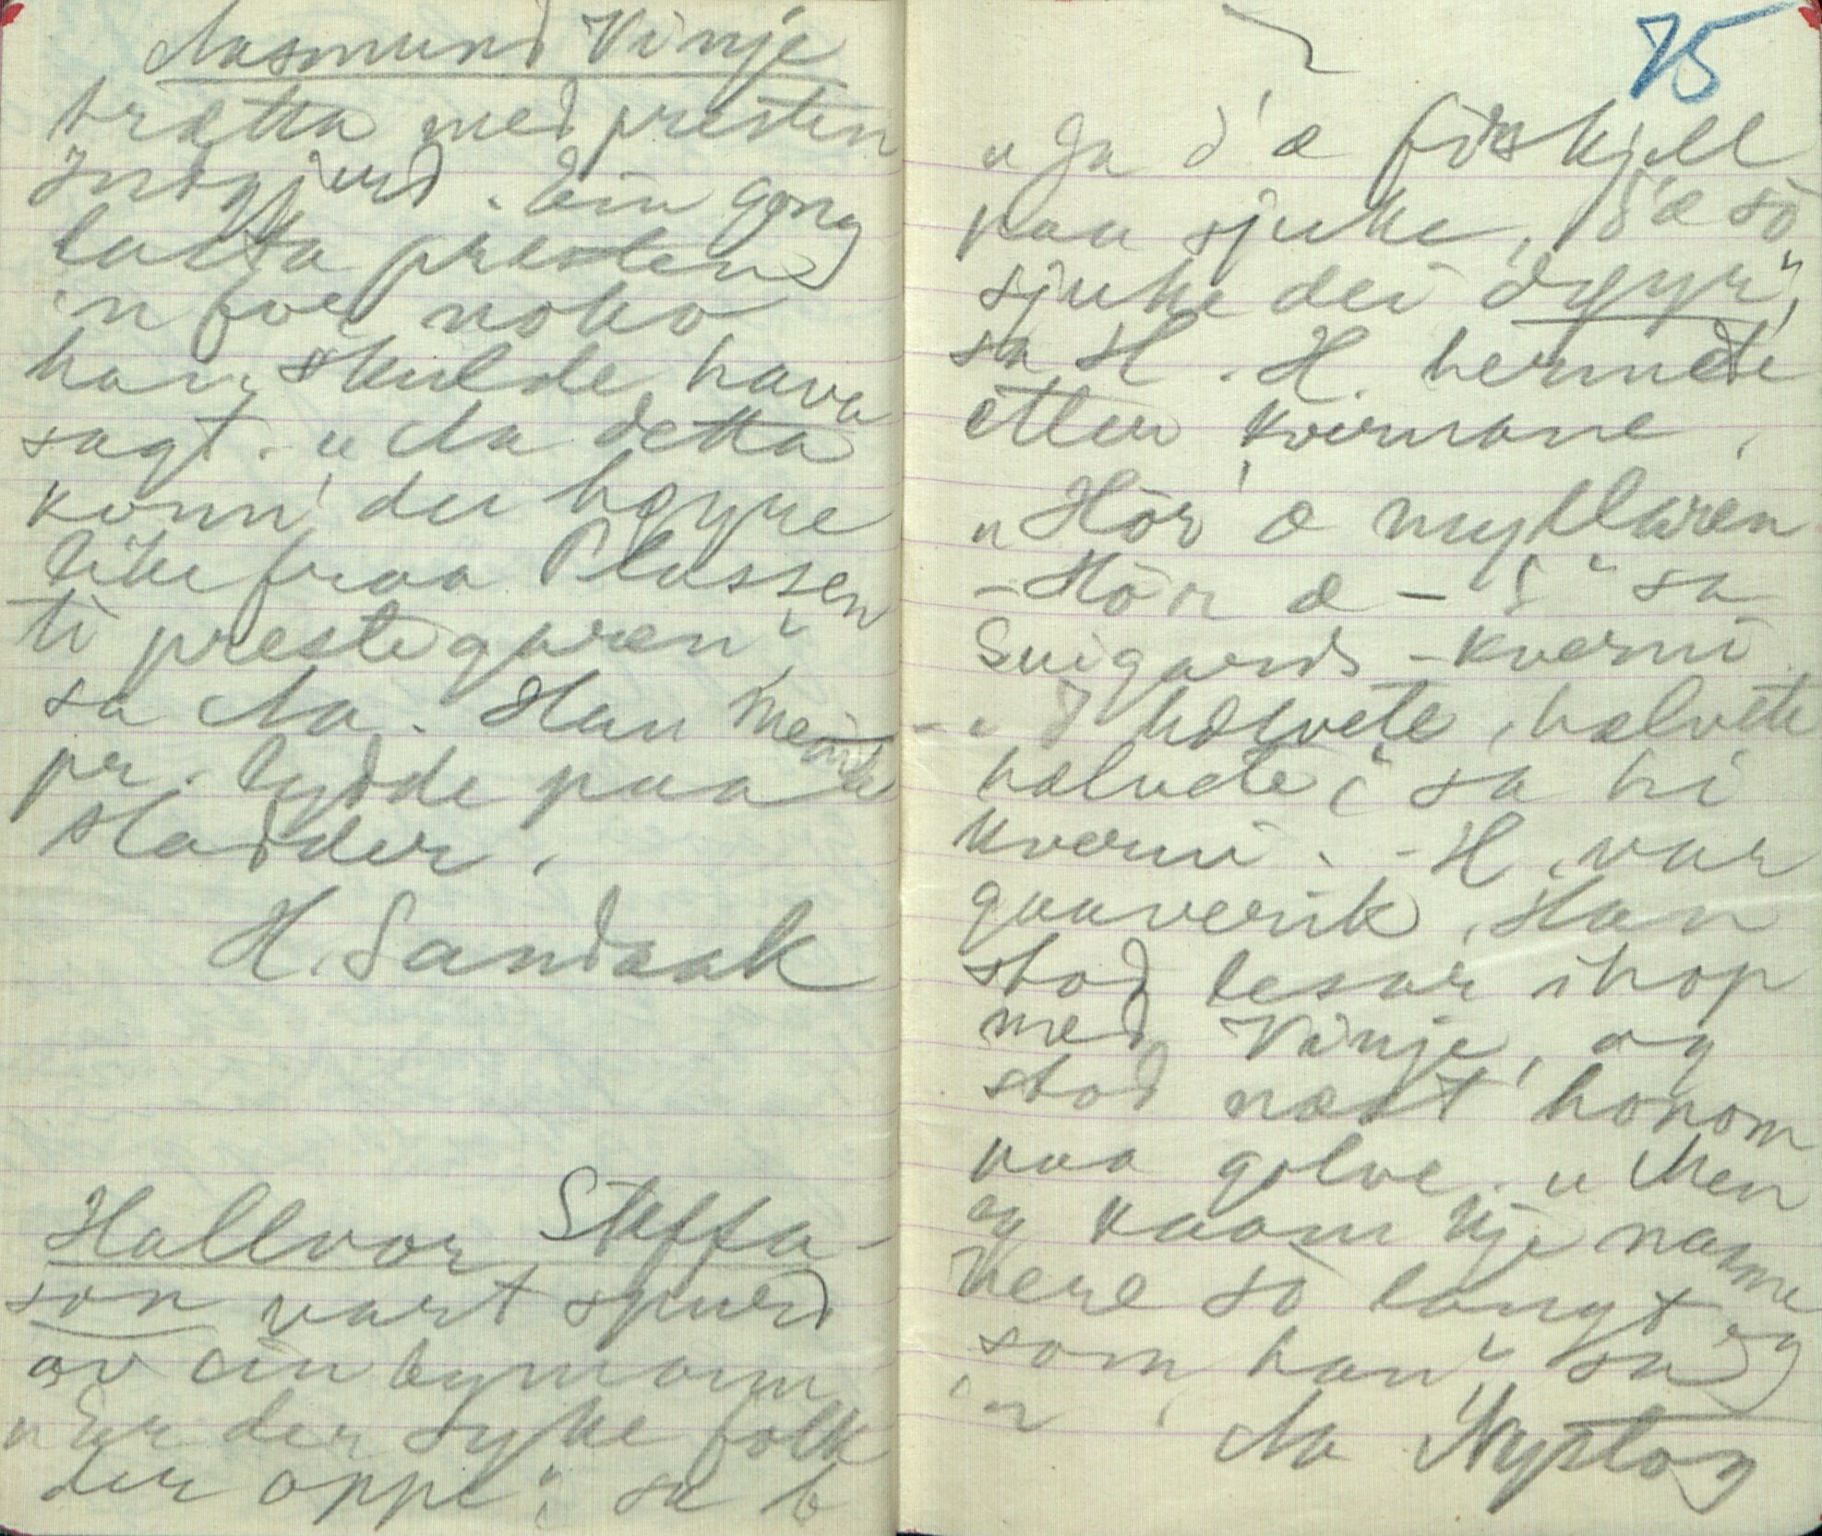 Aasmund Vinje
trætta med presten
Indgjerd. Ein gong
lasta presten
'n foe noko
han skulde hava
sagt. "Aa detta
konn' du høyre
like fraa Plassen
ti prestegaren"
sa Aa. Han meinte
pr. lydde paa
sladder.
H. Sandaak
Hallvor Steffa-
son vart spurd
av ein bymann
"Er der syke folk
der oppe", sa b
75
"Ja d'æ forskjell
paa sjuke, d'æ so
sjuke dei døyr",
sa H. H. hermde
etter kvernane,
"Hør æ myllaren
- Hør æ - " sa
Suigards-kverni
- "I helvete, helvete
helvete," sa hi
kverni. - H. var
gaaverik. Han
stod lesar ihop
med Vinje, og
stod næst honom
paa golve. "Men
eg kaam kje naame
vere so langt
som han" sa
'n. Aa Nyplog